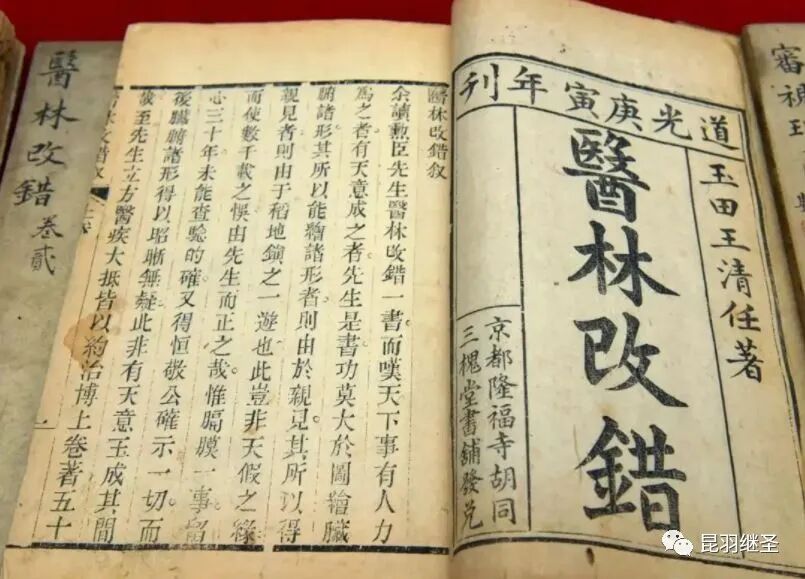 道光庚寅年刊
玉田王清任著
醫林改錯
京都隆福寺胡同
三槐堂書鋪發兌
醫林改錯敘
余讀勳臣先生醫林改錯一書而嘆天下事有人力
為之者有天意成之者先生是書功莫大於圖繪臟
腑諸形其所以能繪諸形者則由於親見其所以得
親見者則由于稻地鎮之一遊也此豈非天假之緣
而使數千載之悞由先生而正之哉惟膈膜一事留
心三十年未能查驗的確又得恒敬公確示一切而
後臟腑諸形得以昭晰無疑此非有天意玉成其間
哉至先生立方醫疾大抵皆以約治博上卷著五十
林改錯敘
一
醫林改錯 卷貳
審視
昆羽继圣